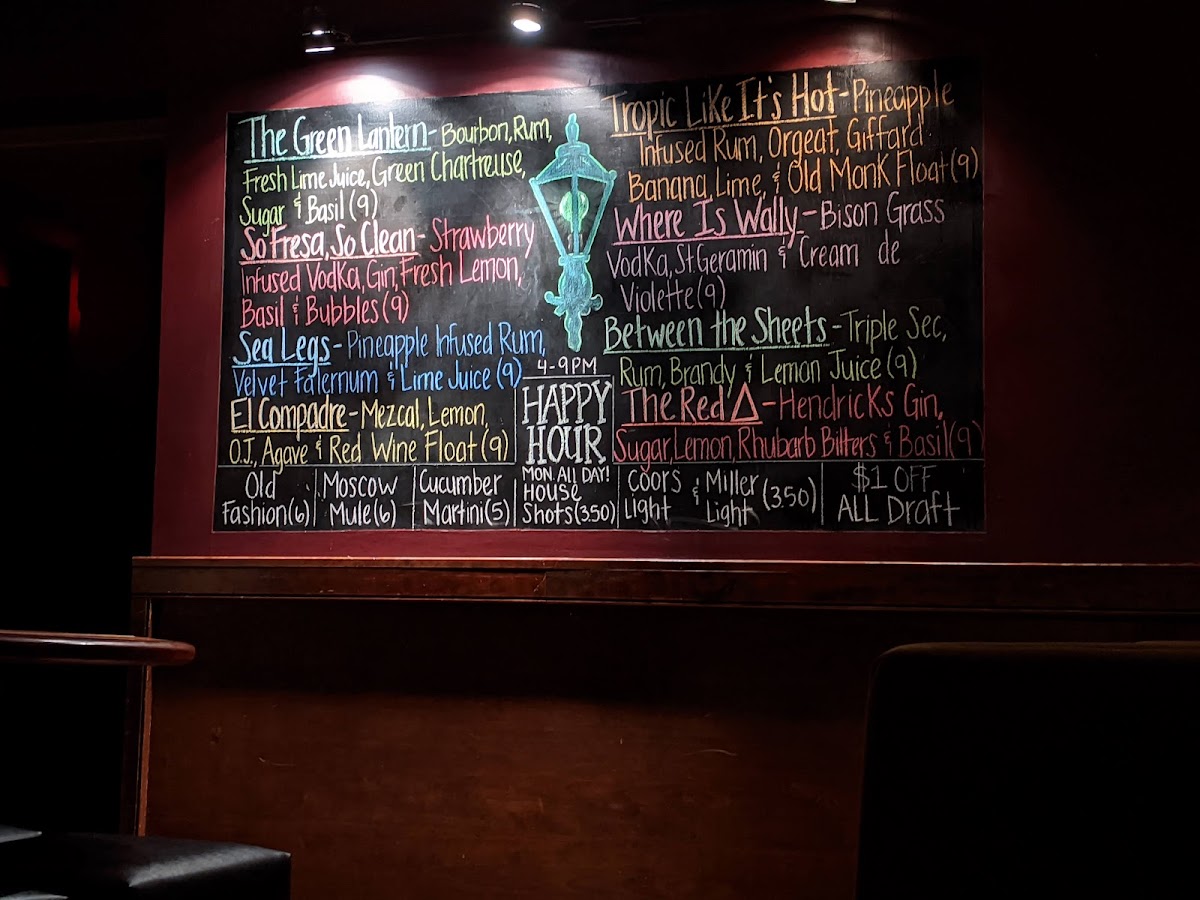 The Green Lantern - Bourbon, Rum,
Fresh Lime Juice, Green Chartreuse,
Sugar & Basil (9)
So Fresa, So Clean - Strawberry
Infused Vodka, Gin, Fresh Lemon,
Basil & Bubbles (9)
Sea Legs - Pineapple Infused Rum,
Velvet Falernum & Lime Juice (9)
El Compadre - Mezcal, Lemon,
O.J., Agave & Red Wine Float (9)
Tropic Like It's Hot - Pineapple
Infused Rum, Orgeat, Giffard
Banana, Lime, & Old Monk Float (9)
Where Is Wally - Bison Grass
Vodka, St. Geramin & Cream de
Violette (9)
Between the Sheets - Triple Sec,
Rum, Brandy & Lemon Juice (9)
The Red Δ - Hendricks Gin,
Sugar, Lemon, Rhubarb Bitters & Basil (9)
4-9PM
HAPPY
HOUR
MON. ALL DAY!
Old
Fashion (6)
Moscow
Mule (6)
Cucumber
Martini (5)
House
Shots (3.50)
Coors
Light
& Miller
Light
(3.50)
$1 OFF
ALL Draft